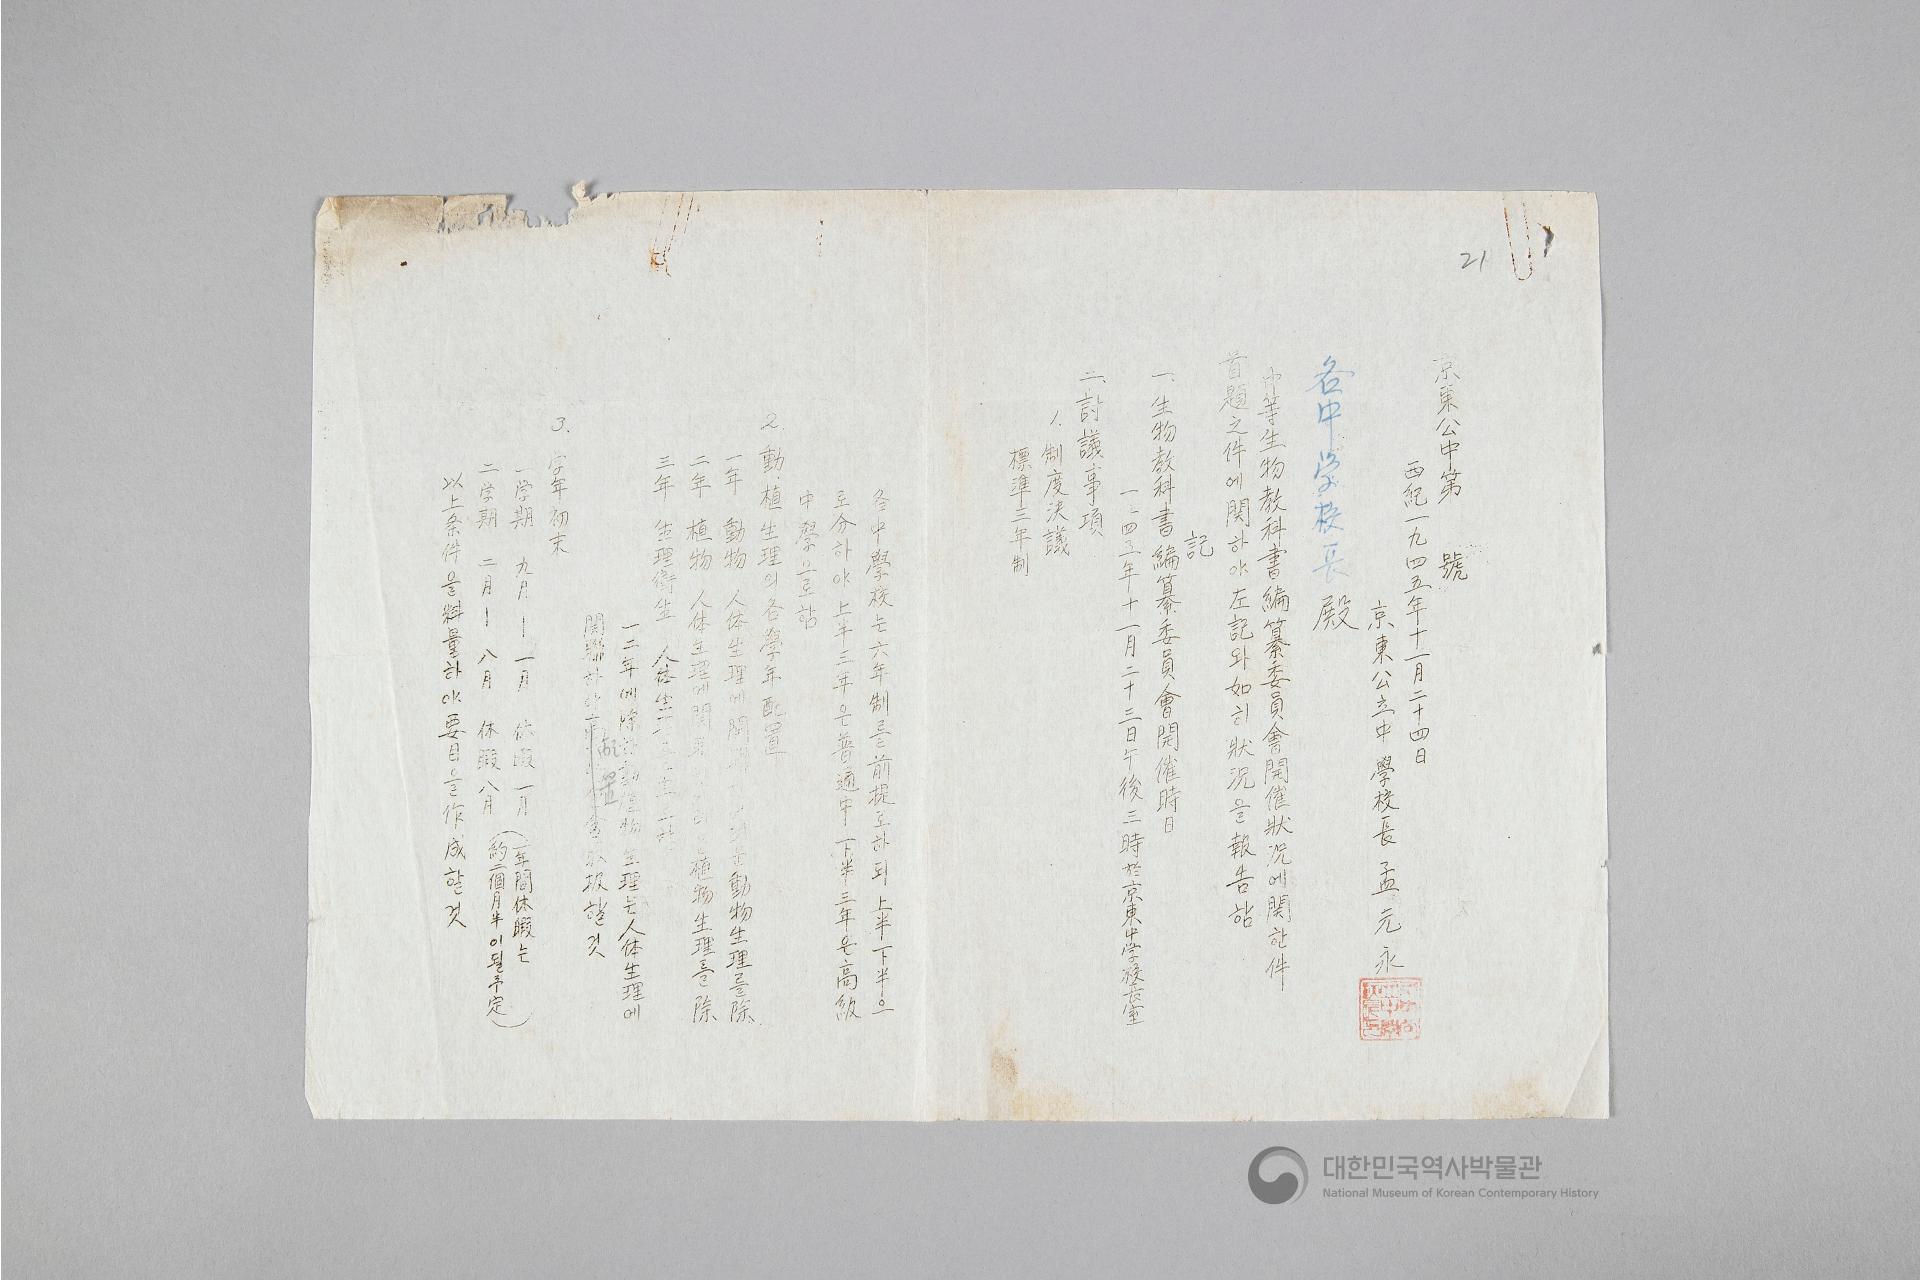 21
京東公中第 號
西紀一九四五年十一月二十四日
京東公立中學校長 孟元永
各中学校長 殿
中等生物教科書編纂委員會開催狀況에関한件
首題之件에関하야左記와如히狀況을報告함
記
一、生物教科書編纂委員會開催時日
一九四五年十一月二十三日午後三時於京東中学校長室
二、討議事項
1. 制度決議
標準三年制
各中學校는六年制를前提로하되上半下半으
로分하야上半三年은普通中下半三年은高級
中學으로함
2. 動.植生理의各學年配置
一年 動物 人体生理에関 動物生理를除
二年 植物 人体生理에関 植物生理를除
三年 生理衛生 人体生
一二年에除한動植物生理는人体生理에
関聯하야 取扱할것
3. 学年初末
一学期 九月ー一月 休暇一月
二学期 二月ー八月 休暇八月
(一年間休暇는
約二個月半이될予定)
以上条件을料量하야要目을作成할것
대한민국역사박물관
National Museum of Korean Contemporary History